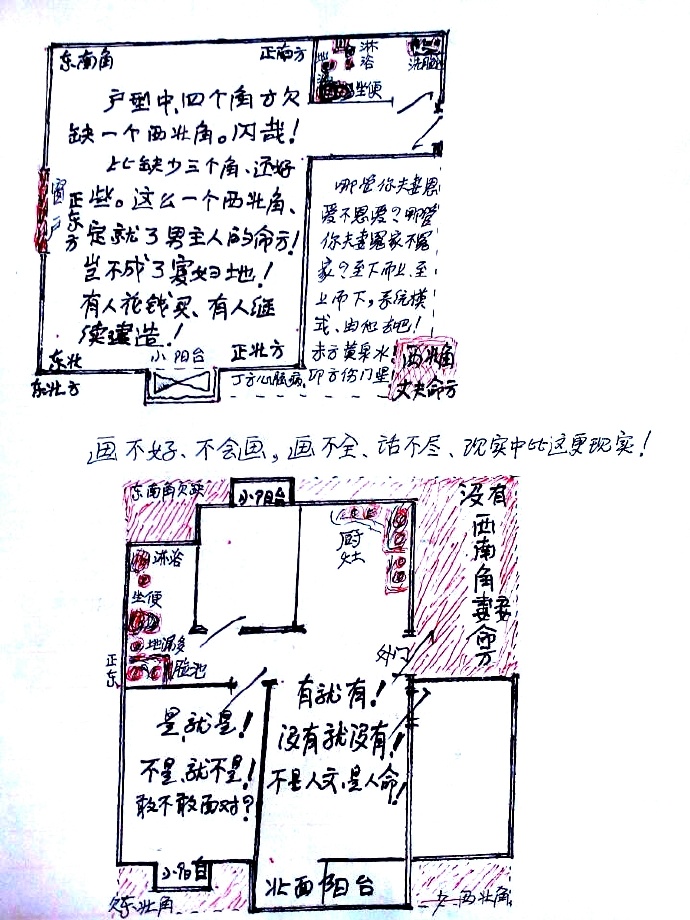 东南角
正南方
淋浴
洗脸
坐便
户型中,四个角方欠
缺一个西北角。闪哉!
比缺少三个角、还好
些。这么一个西北角、
定就了男主人的命方!
岂不成了寡妇地!
有人花钱买、有人继
续建造!
窗户
正东方
哪管你夫妻恩
爱不恩爱?哪管
你夫妻冤家不冤
家?至下而上、至
上而下,系统模
式、由他去吧!
赤方黄泉水!
西北角
丈夫命方
东北
小阳台
正北方
东北方
丁方心脏病,卯方伤门堡
画不好、不会画,画不全、话不尽、现实中比这更现实!
东南角欠缺
小阳台
没有西南角妻命方
厨灶
淋浴
坐便
地漏多
脸池
正东
外门
有就有!
没有就没有!
不是人文、是人命!
是就是!
不是、就不是!
敢不敢面对?
小阳台
北面阳台
欠东北角
欠西北角